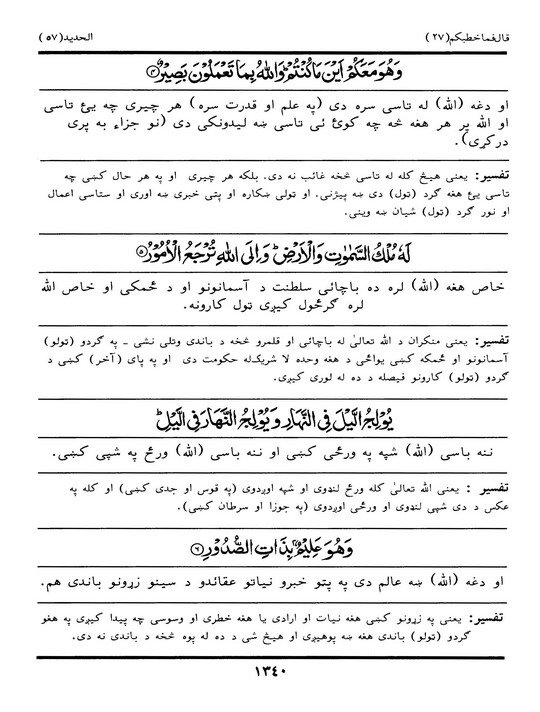 قال فما خطبكم (٢٧) الحديد (٥٧)
وَهُوَ مَعَكُمْ اَيْنَ مَا كُنْتُمْ وَاللّٰهُ بِمَا تَعْمَلُوْنَ بَصِيْرٌ ④
او دغه (الله) له تاسی سره دی (په علم او قدرت سره) هر چیری چه یئ تاسی
او الله پر هر هغه څه چه کوئ ئی تاسی ښه لیدونکی دی (نو جزاء به پری
درکړی).
تفسیر: یعنی هیڅ کله له تاسی څخه غائب نه دی. بلکه هر چیری او په هر حال کښی چه
تاسی یئ هغه گرد (تول) دی ښه پیژنی. او تولی ښکاره او پتی خبری ښه اوری او ستاسی اعمال
او نور گرد (تول) شیان ښه وینی.
لَهٗ مُلْكُ السَّمٰوٰتِ وَالْاَرْضِ ؕ وَاِلَى اللّٰهِ تُرْجَعُ الْاُمُوْرُ ⑤
خاص هغه (الله) لره ده باچائی سلطنت د آسمانونو او د ځمکی او خاص الله
لره گرځول کیږی تول کارونه.
تفسیر: یعنی منکران د الله تعالیٰ له باچائی او قلمرو څخه د باندی وتلی نشی ـ په گردو (تولو)
آسمانونو او ځمکه کښی یواځی د هغه وحده لا شریک‌له حکومت دی او په پای (آخر) کښی د
گردو (تولو) کارونو فیصله د ده له لوری کیږی.
يُوْلِجُ الَّيْلَ فِى النَّهَارِ وَيُوْلِجُ النَّهَارَ فِى الَّيْلِ ؕ
ننه باسی (الله) شپه په ورځی کښی او ننه باسی (الله) ورځ په شپی کښی.
تفسیر : یعنی الله تعالیٰ کله ورځ لنډوی او شپه اوږدوی (په قوس او جدی کښی) او کله په
عکس د دی شپی لنډوی او ورځی اوږدوی (په جوزا او سرطان کښی).
وَهُوَ عَلِيْمٌۢ بِذَاتِ الصُّدُوْرِ ⑥
او دغه (الله) ښه عالم دی په پتو خبرو نیاتو عقائدو د سینو زړونو باندی هم.
تفسیر: یعنی په زړونو کښی هغه نیات او ارادی یا هغه خطری او وسوسی چه پیدا کیږی په هغو
گردو (تولو) باندی هغه ښه پوهیږی او هیڅ شی د ده له پوه څخه د باندی نه دی.
١٣٤٠